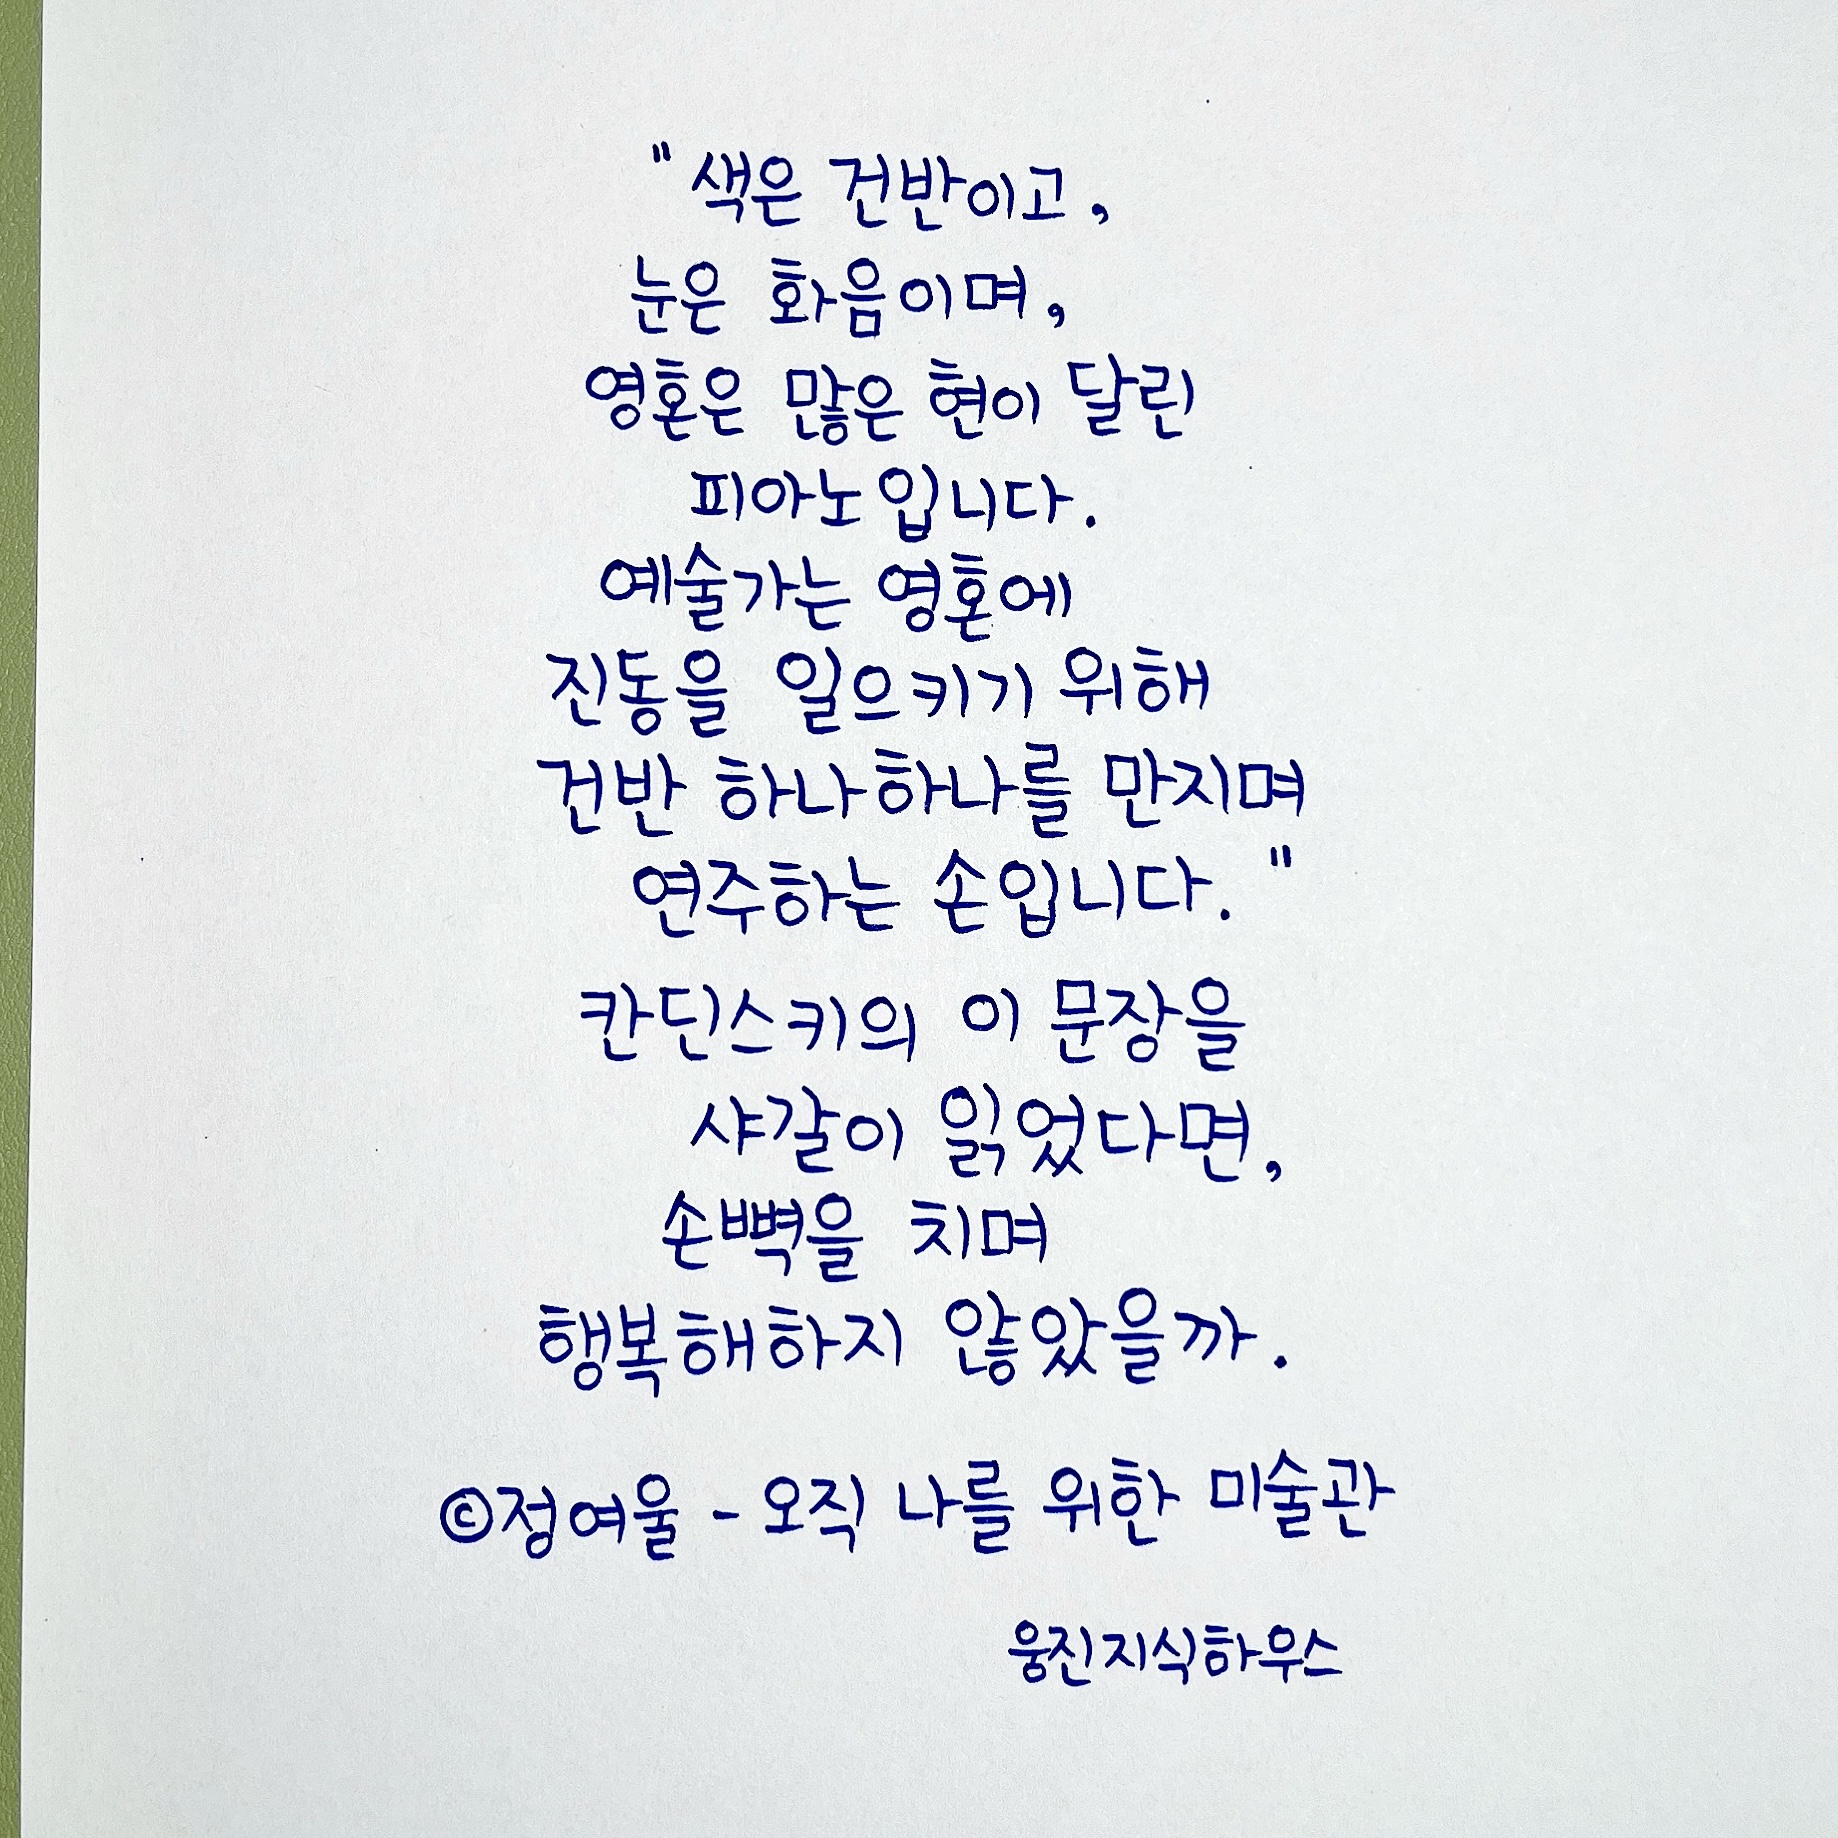 "색은 건반이고,
눈은 화음이며,
영혼은 많은 현이 달린
피아노입니다.
예술가는 영혼에
진동을 일으키기 위해
건반 하나하나를 만지며
연주하는 손입니다."
칸딘스키의 이 문장을
샤갈이 읽었다면,
손뼉을 치며
행복해하지 않았을까.
©정여울 - 오직 나를 위한 미술관
웅진지식하우스